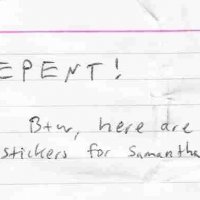 EPENT!
Btw, here are
stickers for Samantha